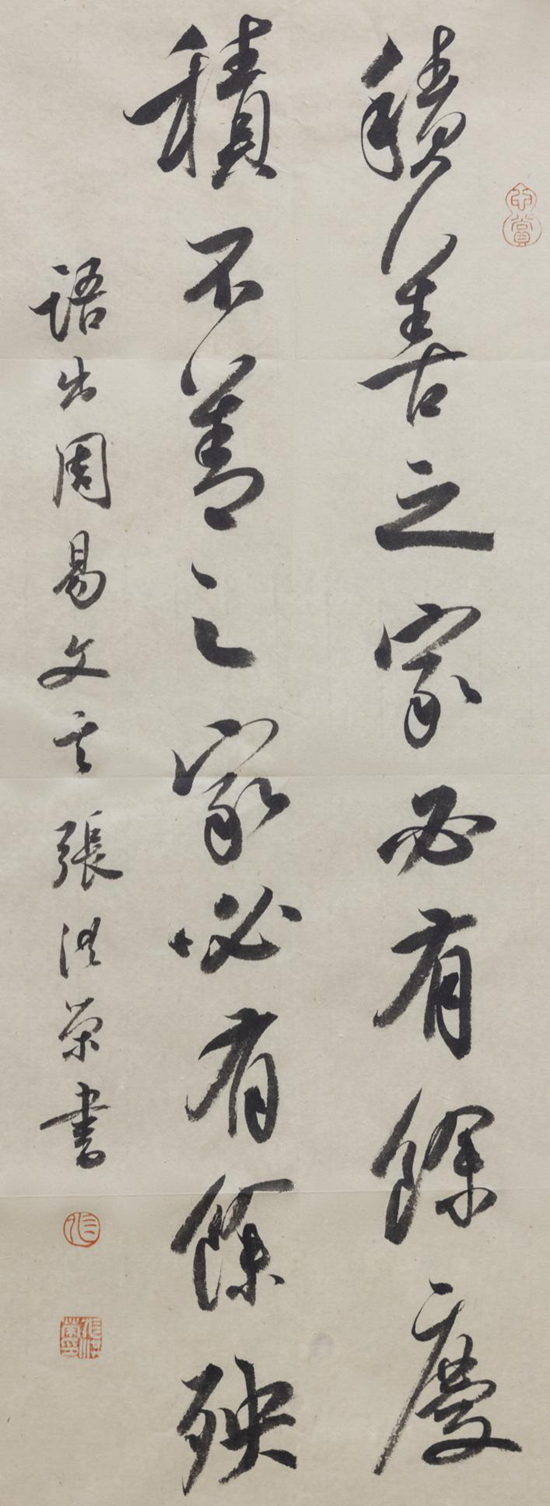 積善之家必有餘慶
積不善之家必有餘殃
語出周易文言張洪榮書